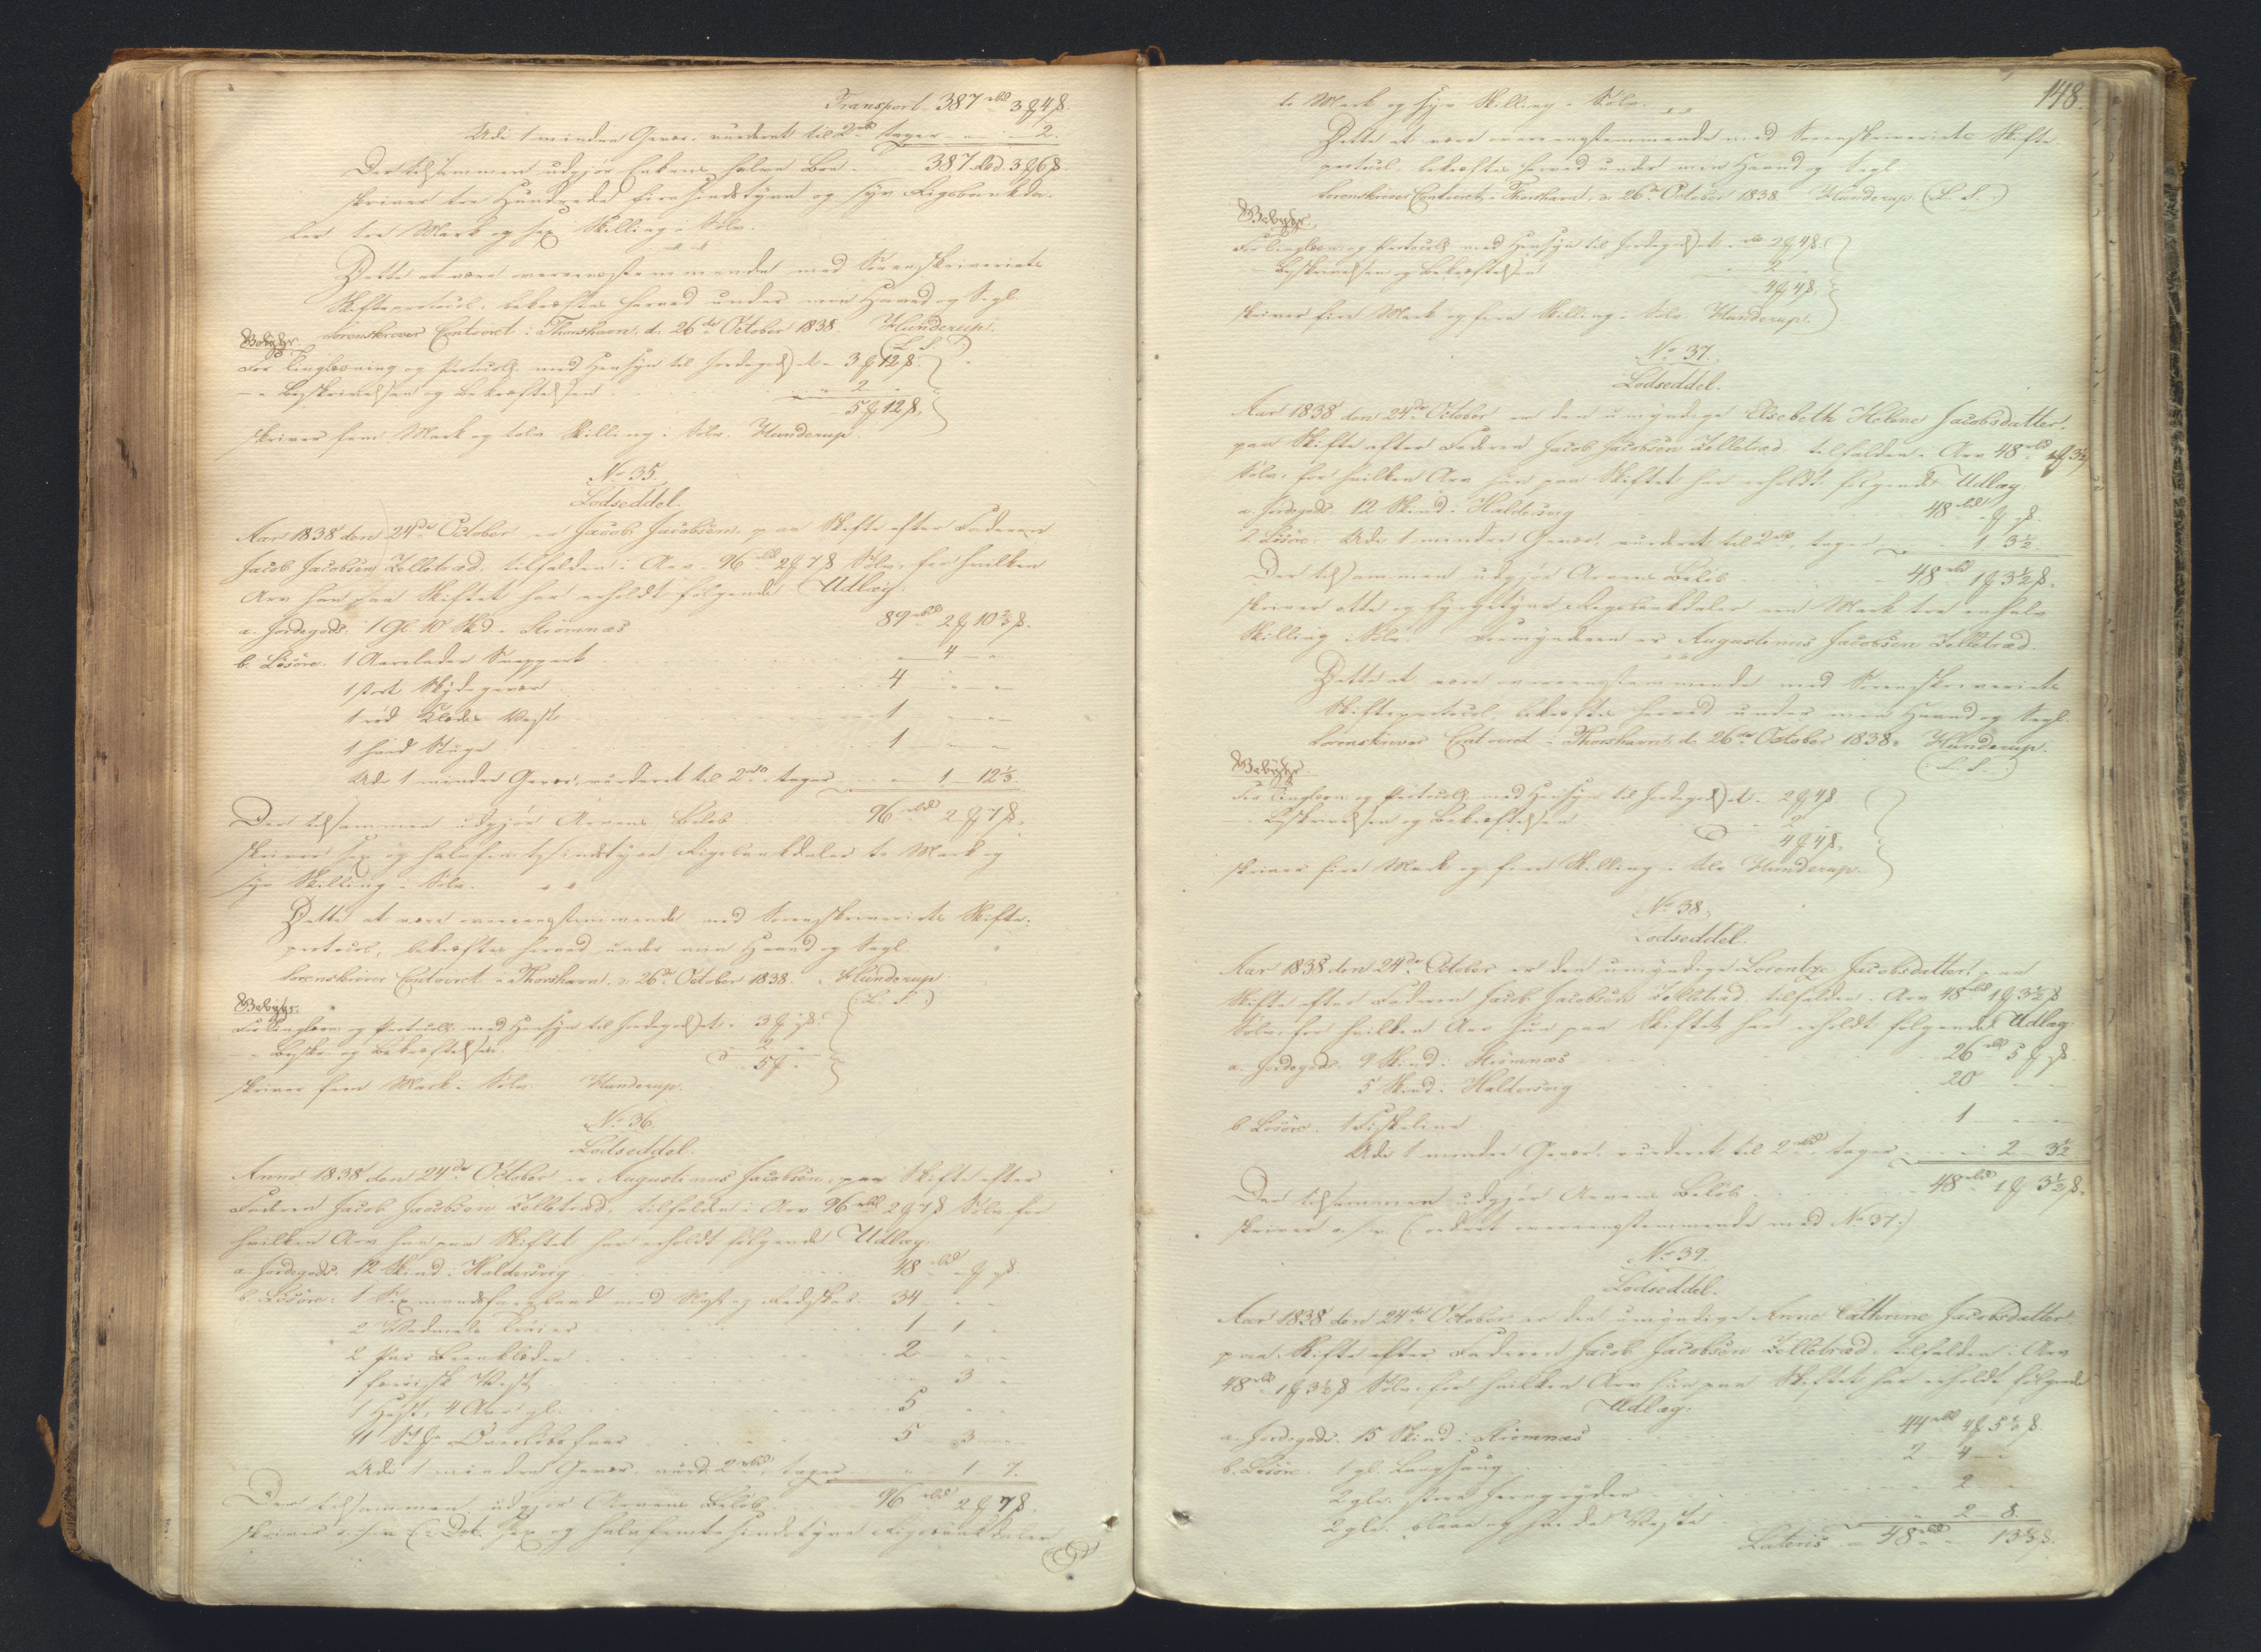 Transport 387 rbd 3 ℳ 4 ß.
Udi 1 mindre Gevær, vurderet til 2 rbd, tager - " - 2.
Der tilsammen udgjør Enkens halve Boe - 387 rbd. 3 ℳ 6 ß.
skriver tre Hundrede fiirsindstyve og syv Rigsbankda-
ler tre Mark og sex Skilling i Sølv.
Dette at være overeensstemmende med Sorenskriveriets
Skifteprotocol, bekræftes herved under min Haand og Segl.
Sorenskriver Contoiret i Thorshavn, d. 26de October 1838. Hunderup.
(L. S.)
Gebyhr.
For Tinglæsning og Protocoll. med Hensyn til Jordegodset - 3 ℳ 12 ß.
- " Beskrivelsen og Bekræftelsen - " 2 -
5 ℳ 12 ß.
skriver fem Mark og tolv Skilling i Sølv. Hunderup.
No 35.
Lodseddel.
Aar 1838 den 24de October er Jacob Jacobsen, paa Skifte efter Faderen
Jacob Jacobsen Zelletræd, tilfalden i Arv 96 rbd 2 ℳ 7 ß Sølv, for hvilken
Arv han paa Skiftet har erholdt følgende Udlæg:
a. Jordegods: 1 Gl. 10 Skd. i Strømnæs 89 rbd 2 ℳ 10 2/3 ß.
b. Løsøre: 1 Aarelader Sneppert - 4 - "
1 stort Skydegevær 4 " - " -
1 rød Klædes Vest 1 - " -
1 haand Stuge 1 - " -
Udi 1 mindre Gevær, vurderet til 2 rbd, tager " 1 - 12 1/3.
Der tilsammen udgjør Arvens Beløb 96 rbd 2 ℳ 7 ß.
skriver sex og halvfemtesindstyve Rigsbankdaler to Mark og
syv Skilling i Sølv.
Dette at være overeensstemmende med Sorenskriveriets Skifte-
protocol, bekræftes herved under min Haand og Segl.
Sorenskriver Contoiret i Thorshavn, d. 26de October 1838. Hunderup.
(L. S.)
Gebyhr.
For Tinglæsn. og Protocoll. med Hensyn til Jordegodset - 3 ℳ " ß.
- " Beskr. og Bekræftelsen - 2. "
5 ℳ "
skriver fem Mark i Sølv. Hunderup.
No 36.
Lodseddel.
Anno 1838 den 24de October er Augustinus Jacobsen, paa Skifte efter
Faderen Jacob Jacobsen Zelletræd, tilfalden i Arv 96 rbd 2 ℳ 7 ß Sølv, for
hvilken Arv han paa Skiftet har erholdt følgende Udlæg:
a. Jordegods: 12 Skind i Haldersvig 48 rbd " ℳ " ß.
b. Løsøre: 1 Sexmandsfarebaad med Mast og Redskab 34 - " -
2 Vadmels Trøier 1 - 1 -
2 Par Beenklæder 2 - " -
1 færøisk Vest " 3 "
1 Hest, 4 Aar gl. 5 - " -
5 - 3 -
Udi 1 mindre Gevær, vurd. 2 rbd, tager " 1 7.
Der tilsammen udgjør Arvens Beløb 96 rbd 2 ℳ 7 ß.
skriver sex og halvfemtesindstyve Rigsbankdaler
148.
to Mark og syv Skilling i Sølv.
Dette at være overeensstemmende med Sorenskriveriets Skifte-
protocol, bekræftes herved under min Haand og Segl.
Sorenskriver Contoiret i Thorshavn, d. 26de October 1838. Hunderup. (L. S.)
Gebyhr.
For Tinglæsn. og Protocoll. med Hensyn til Jordegodset - 2 ℳ 4 ß.
- Beskrivelsen og Bekræftelsen - 2 -
4 ℳ 4 ß.
skriver fire Mark og fire Skilling i Sølv. Hunderup.
No 37.
Lodseddel.
Aar 1838 den 24de October er den umyndige Elsebeth Helene Jacobsdatter,
paa Skifte efter Faderen Jacob Jacobsen Zelletræd, tilfalden i Arv 48 rbd 1 ℳ 3 1/2 ß
Sølv, for hvilken Arv hun paa Skiftet har erholdt følgende Udlæg:
a. Jordegods: 12 Skind i Haldersvig 48 rbd " ℳ " ß.
b. Løsøre: Udi 1 mindre Gevær, vurderet til 2 rbd, tager - 1 3 1/2
Der tilsammen udgjør Arvens Beløb 48 rbd 1 ℳ 3 1/2 ß.
skriver otte og fyrgetyve Rigsbankdaler een Mark tre en halv
Skilling Sølv. Formynderen er Augustinus Jacobsen Zelletræd.
Dette at være overeensstemmende med Sorenskriveriets
Skifteprotocol, bekræftes herved under min Haand og Segl.
Sorenskriver Contoiret i Thorshavn, d. 26de October 1838. Hunderup.
(L. S.)
Gebyhr.
For Tinglæsn. og Protocoll. med Hensyn til Jordegodset - 2 ℳ 4 ß
- Beskrivelsen og Bekræftelsen - 2 "
4 ℳ 4 ß.
skriver fire Mark og fire Skilling i Sølv. Hunderup.
No 38.
Lodseddel.
Aar 1838 den 24de October er den umyndige Lorentze Jacobsdatter, paa
Skifte efter Faderen Jacob Jacobsen Zelletræd, tilfalden i Arv 48 rbd 1 ℳ 3 1/2 ß
Sølv, for hvilken Arv hun paa Skiftet har erholdt følgende Udlæg:
a. Jordegods: 9 Skind i Strømnæs 26 rbd 5 ℳ " ß.
5 Skind i Haldersvig 20 - " -
b. Løsøre: 1 Fiskeline 1 - " -
Udi 1 mindre Gevær, vurderet til 2 rbd, tager " 2 - 3 1/2
Der tilsammen udgjør Arvens Beløb 48 rbd 1 ℳ 3 1/2 ß.
skriver o.s.v. (: ordret overeensstemmende med No 37:)
No 39.
Lodseddel.
Aar 1838 den 24de October er den umyndige Anne Cathrine Jacobsdatter
paa Skifte efter Faderen Jacob Jacobsen Zelletræd, tilfalden i Arv
48 rbd 1 ℳ 3 1/2 ß Sølv, for hvilken Arv hun paa Skiftet har erholdt følgende
Udlæg:
a. Jordegods: 15 Skind i Strømnæs 44 rbd 4 ℳ 5 1/3 ß.
b. Løsøre: 1 gl. 2 - 4 -
2 gle. store 2 -
2 gle. blaae og hvide Veste " 2 - 8.
Lateris - 48 rbd " 13 1/3 ß.